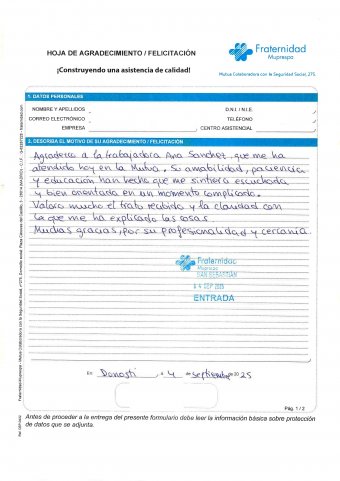 HOJA DE AGRADECIMIENTO / FELICITACIÓN
¡Construyendo una asistencia de calidad!
Fraternidad
Muprespa
Mutua Colaboradora con la Seguridad Social, 275
1. DATOS PERSONALES
NOMBRE Y APELLIDOS
D.N.I./N.I.E.
CORREO ELECTRÓNICO
TELÉFONO
EMPRESA
CENTRO ASISTENCIAL
2. DESCRIBA EL MOTIVO DE SU AGRADECIMIENTO / FELICITACIÓN
Agradezco a la trabajadora Ana Sanchez que me ha
atendido hoy en la Mutua. Su amabilidad, paciencia
y educación han hecho que me sintiera escuchada
y bien orientada en un momento complicado.
Valoro mucho el trato recibido y la claridad con
la que me ha explicado las cosas.
Muchas gracias, por su profesionalidad y cercanía.
Fraternidad
Muprespa
SAN SEBASTIÁN
04 SEP 2025
ENTRADA
En Donosti, a 4 de septiembre 2025
Pág. 1 / 2
Antes de proceder a la entrega del presente formulario debe leer la información básica sobre protección
de datos que se adjunta.